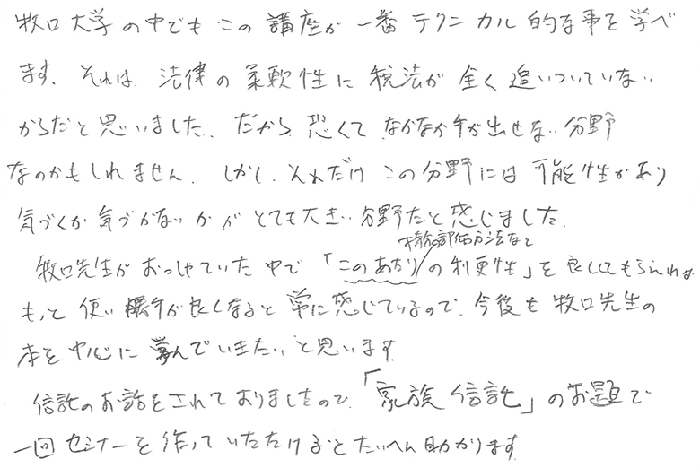 牧口大学の中でもこの講座が一番テクニカル的な事を学べ
ます。それは、法律の柔軟性に税法が全く追いついていない
からだと思いました。だから恐くてなかなか手が出せない分野
なのかもしれません。しかし、それだけこの分野には可能性があり
気づくか気づかないかがとても大きい分野だと感じました。
不動産評価方法など
牧口先生がおっしゃていた中で「このあかりの利便性」を良くしてもらえれば
もっと使い勝手が良くなると常に感じているので、今後も牧口先生の
本を中心に学んでいきたいと思います。
信託のお話をされておりましたので、「家族信託」のお題で
一回セミナーを作っていただけるとたいへん助かります。